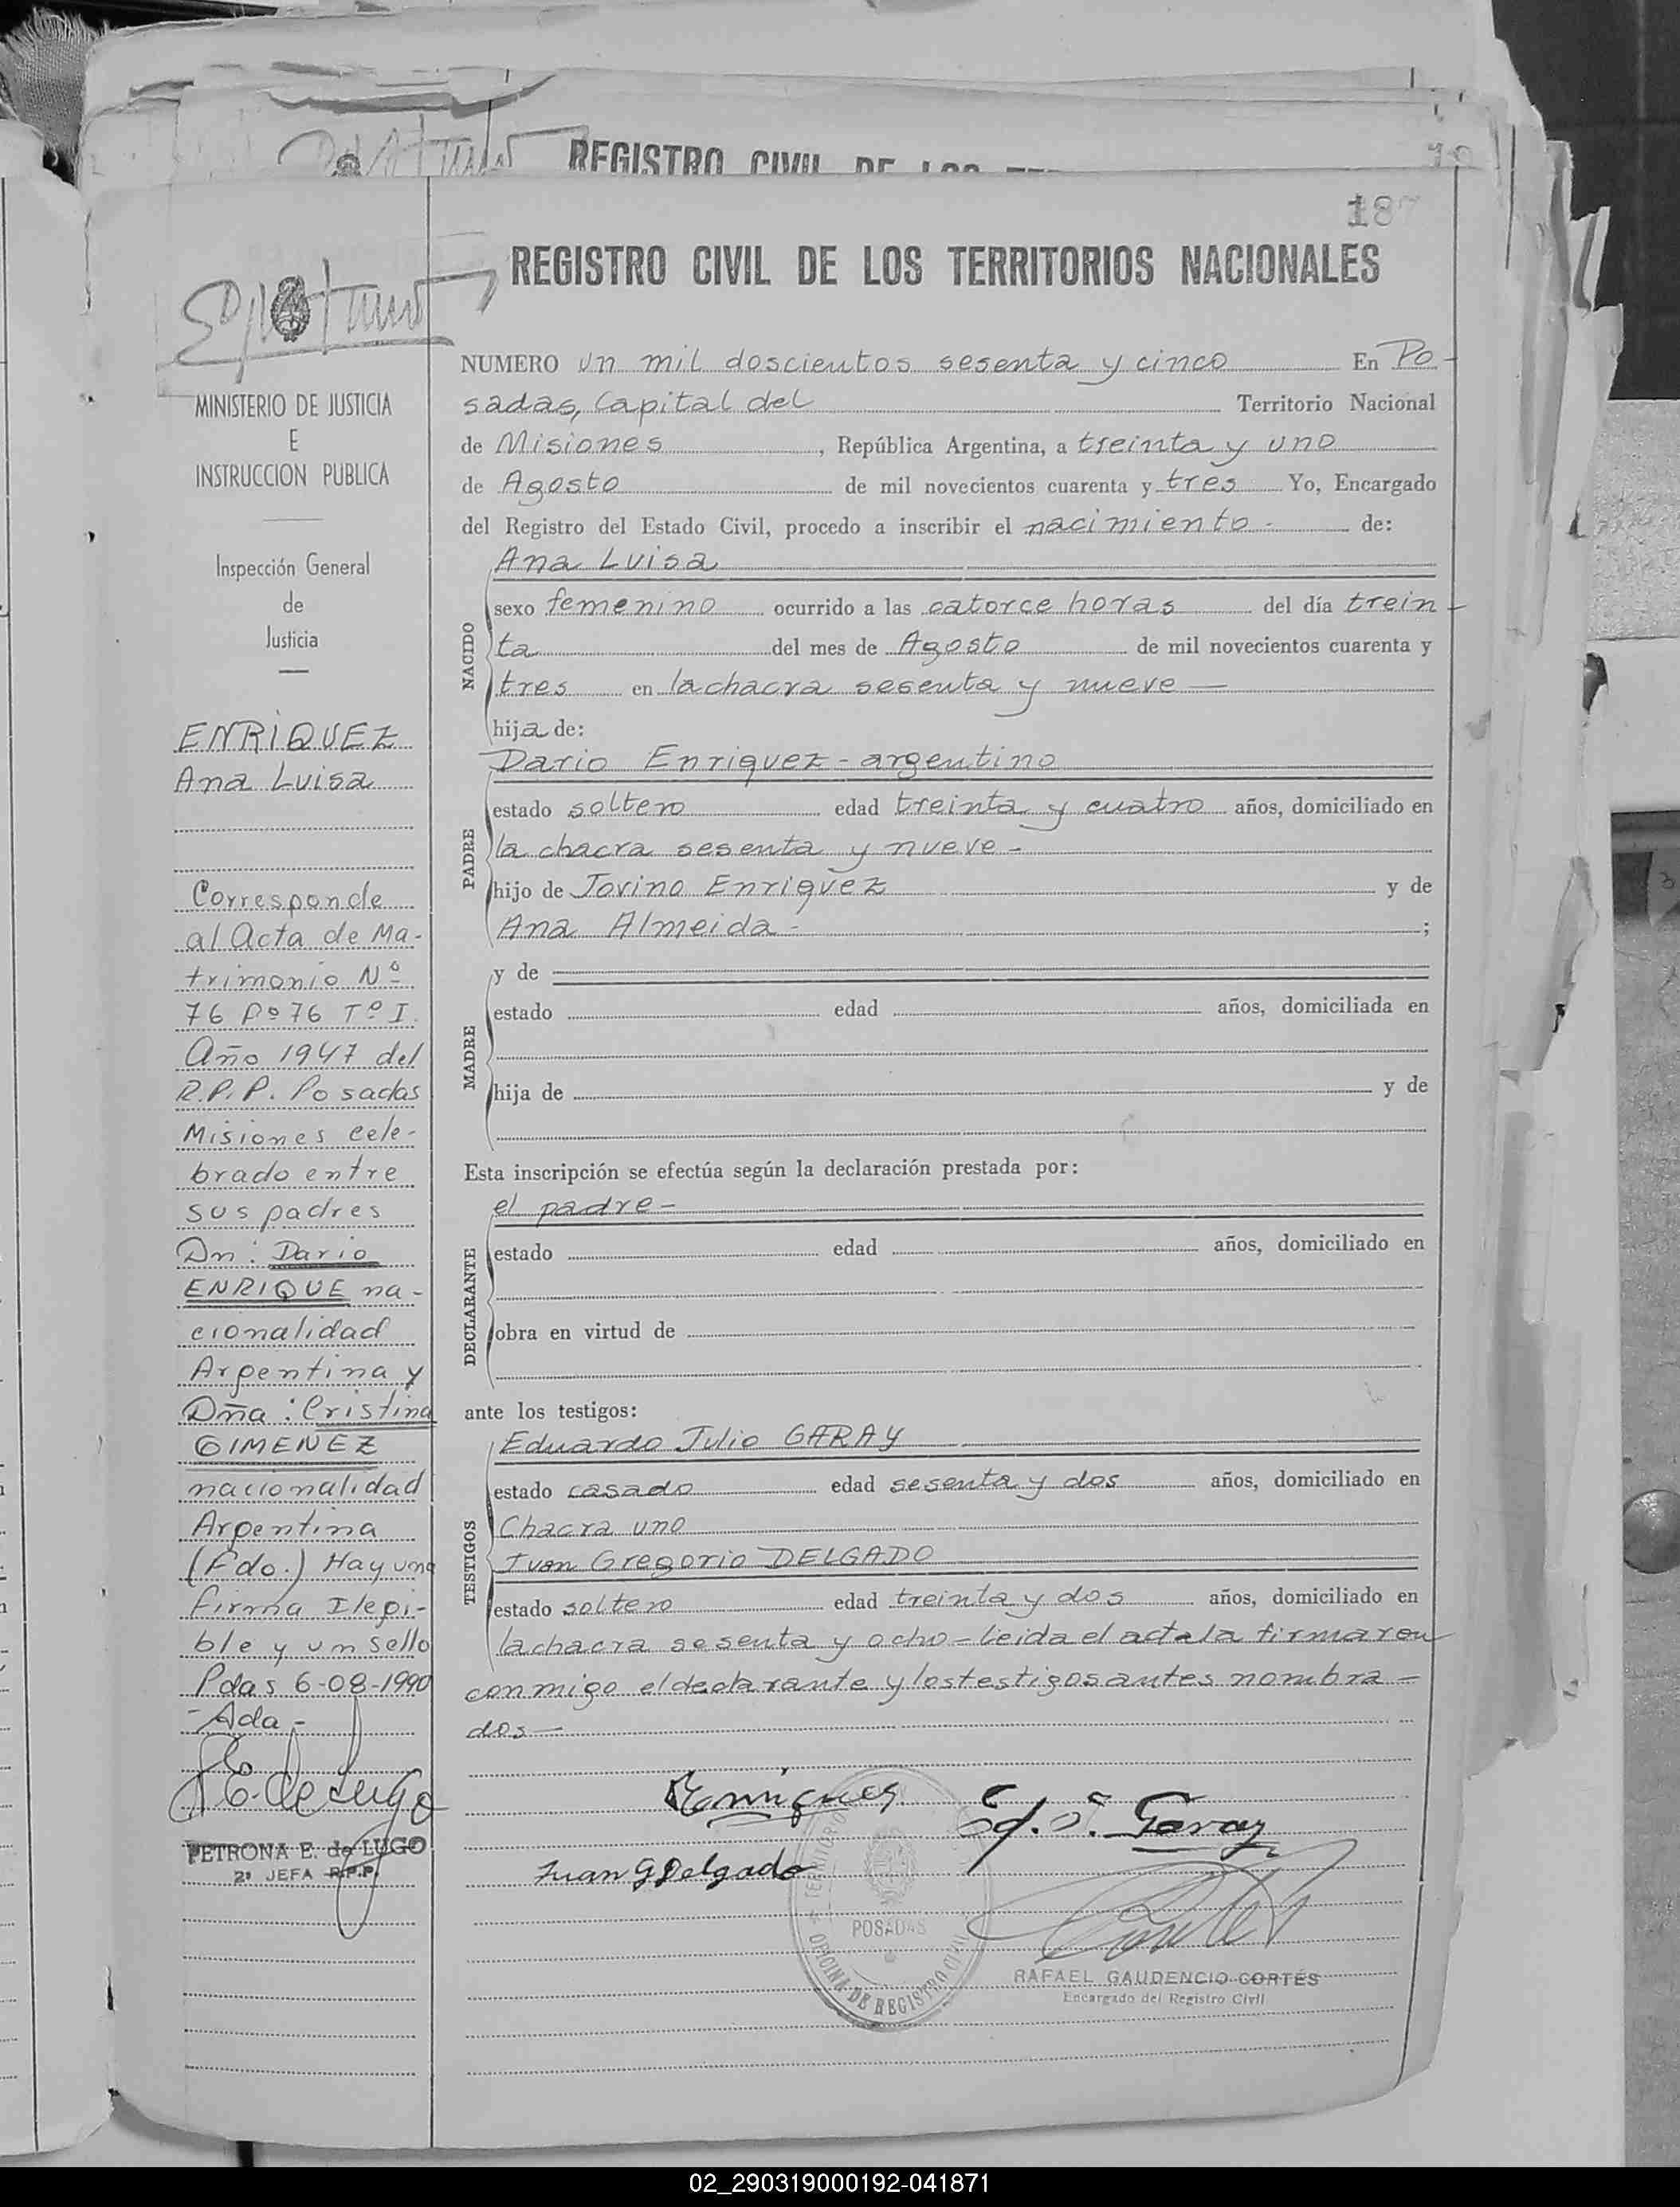 REGISTRO CIVIL DE LOS
187
REGISTRO CIVIL DE LOS TERRITORIOS NACIONALES
MINISTERIO DE JUSTICIA
E
INSTRUCCION PUBLICA
Inspección General
de
Justicia
ENRIQUEZ
Ana Luisa
Corresponde
al Acta de Ma-
trimonio Nº
76 Fº 76 Tº I.
Año 1947 del
R.P.P. Posadas
Misiones cele-
brado entre
sus padres
Dn: Dario
ENRIQUE na-
cionalidad
Argentina y
Dña: Cristina
GIMENEZ
nacionalidad
Argentina
(Fdo.) Hay una
firma Ilegi-
ble y un sello
Pdas 6-08-1990
-Ada-
P E. de Lugo
PETRONA E. de LUGO
2ª JEFA R.P.P.
NUMERO un mil doscientos sesenta y cinco En Po-
sadas, Capital del Territorio Nacional
de Misiones, República Argentina, a treinta y uno
de Agosto de mil novecientos cuarenta y tres Yo, Encargado
del Registro del Estado Civil, procedo a inscribir el nacimiento - de:
NACIDO
Ana Luisa
sexo femenino ocurrido a las catorce horas del día trein-
ta del mes de Agosto de mil novecientos cuarenta y
tres en la chacra sesenta y nueve —
hija de:
PADRE
Dario Enriquez - argentino
estado soltero edad treinta y cuatro años, domiciliado en
la chacra sesenta y nueve -
hijo de Jovino Enriquez y de
Ana Almeida - ;
MADRE
y de
estado edad años, domiciliada en
hija de y de
Esta inscripción se efectúa según la declaración prestada por:
DECLARANTE
el padre -
estado edad años, domiciliado en
obra en virtud de
ante los testigos:
TESTIGOS
Eduardo Julio GARAY
estado casado edad sesenta y dos años, domiciliado en
Chacra uno
Juan Gregorio DELGADO
estado soltero edad treinta y dos años, domiciliado en
la chacra sesenta y ocho - Leida el acta la firmaron
conmigo el declarante y los testigos antes nombra-
dos —
Ed. J. Garay
Juan G Delgado
POSADAS
OFICINA DE REGISTRO CIVIL
RAFAEL GAUDENCIO CORTÉS
Encargado del Registro Civil
02_290319000192-041871